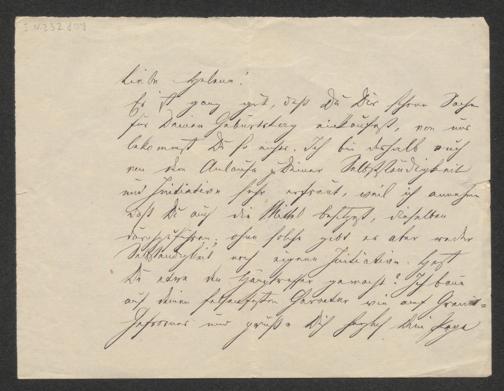 Liebe Helene!
Es ist ganz gut, daß Du Dir schon Sachen
für Deinen Geburtstag einkaufst, von uns
bekommst Du so nichts. Ich bin deshalb auch
von dem Anlaufe zu Deiner Selbstständigkeit
und Initiative sehr erfreut, weil ich annehme
daß Du auch die Mittel besitzest, dieselben
durchzuführen; ohne solche gibt es aber weder
Selbständigkeit noch eigene Initiative. Hast
Du etwa den Haupttreffer gemacht? Ich baue
auf Deinen Charakter wie auf
und grüße Dich herzlich Dein Papa